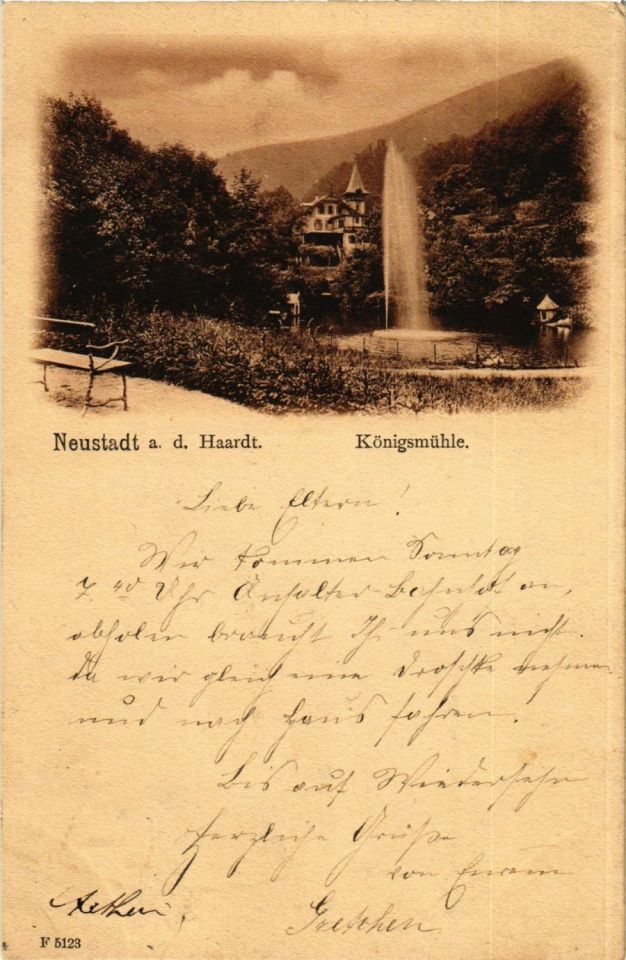 Neustadt a. d. Haardt. Königsmühle.
Liebe Eltern!
Wir kommen Sonntag
7.40 Uhr Anhalter-Bahnhof an,
abholen braucht Ihr uns nicht.
Da wir gleich eine Droschke nehmen
und nach Haus fahren.
Bis auf Wiedersehn
herzliche Grüße
von Eurem
Gretchen
F 5123